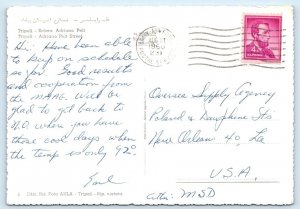 Tripoli - Rione Adriano Pelt
Tripoli - Adriano Pelt Street
Hi, Have been able
to keep on schedule
so far. Good results
and cooperation from
the MANG. Will be
glad to get back to
N.O. when you have
those cool days when
the temp is only 92°.
Earl
1960
Oversea Supply Agency
Poland & Dauphine Sts
New Orleans 40 La
U.S.A.
Attn: MSD
Foto AULA - Tripoli - Rip. vietata